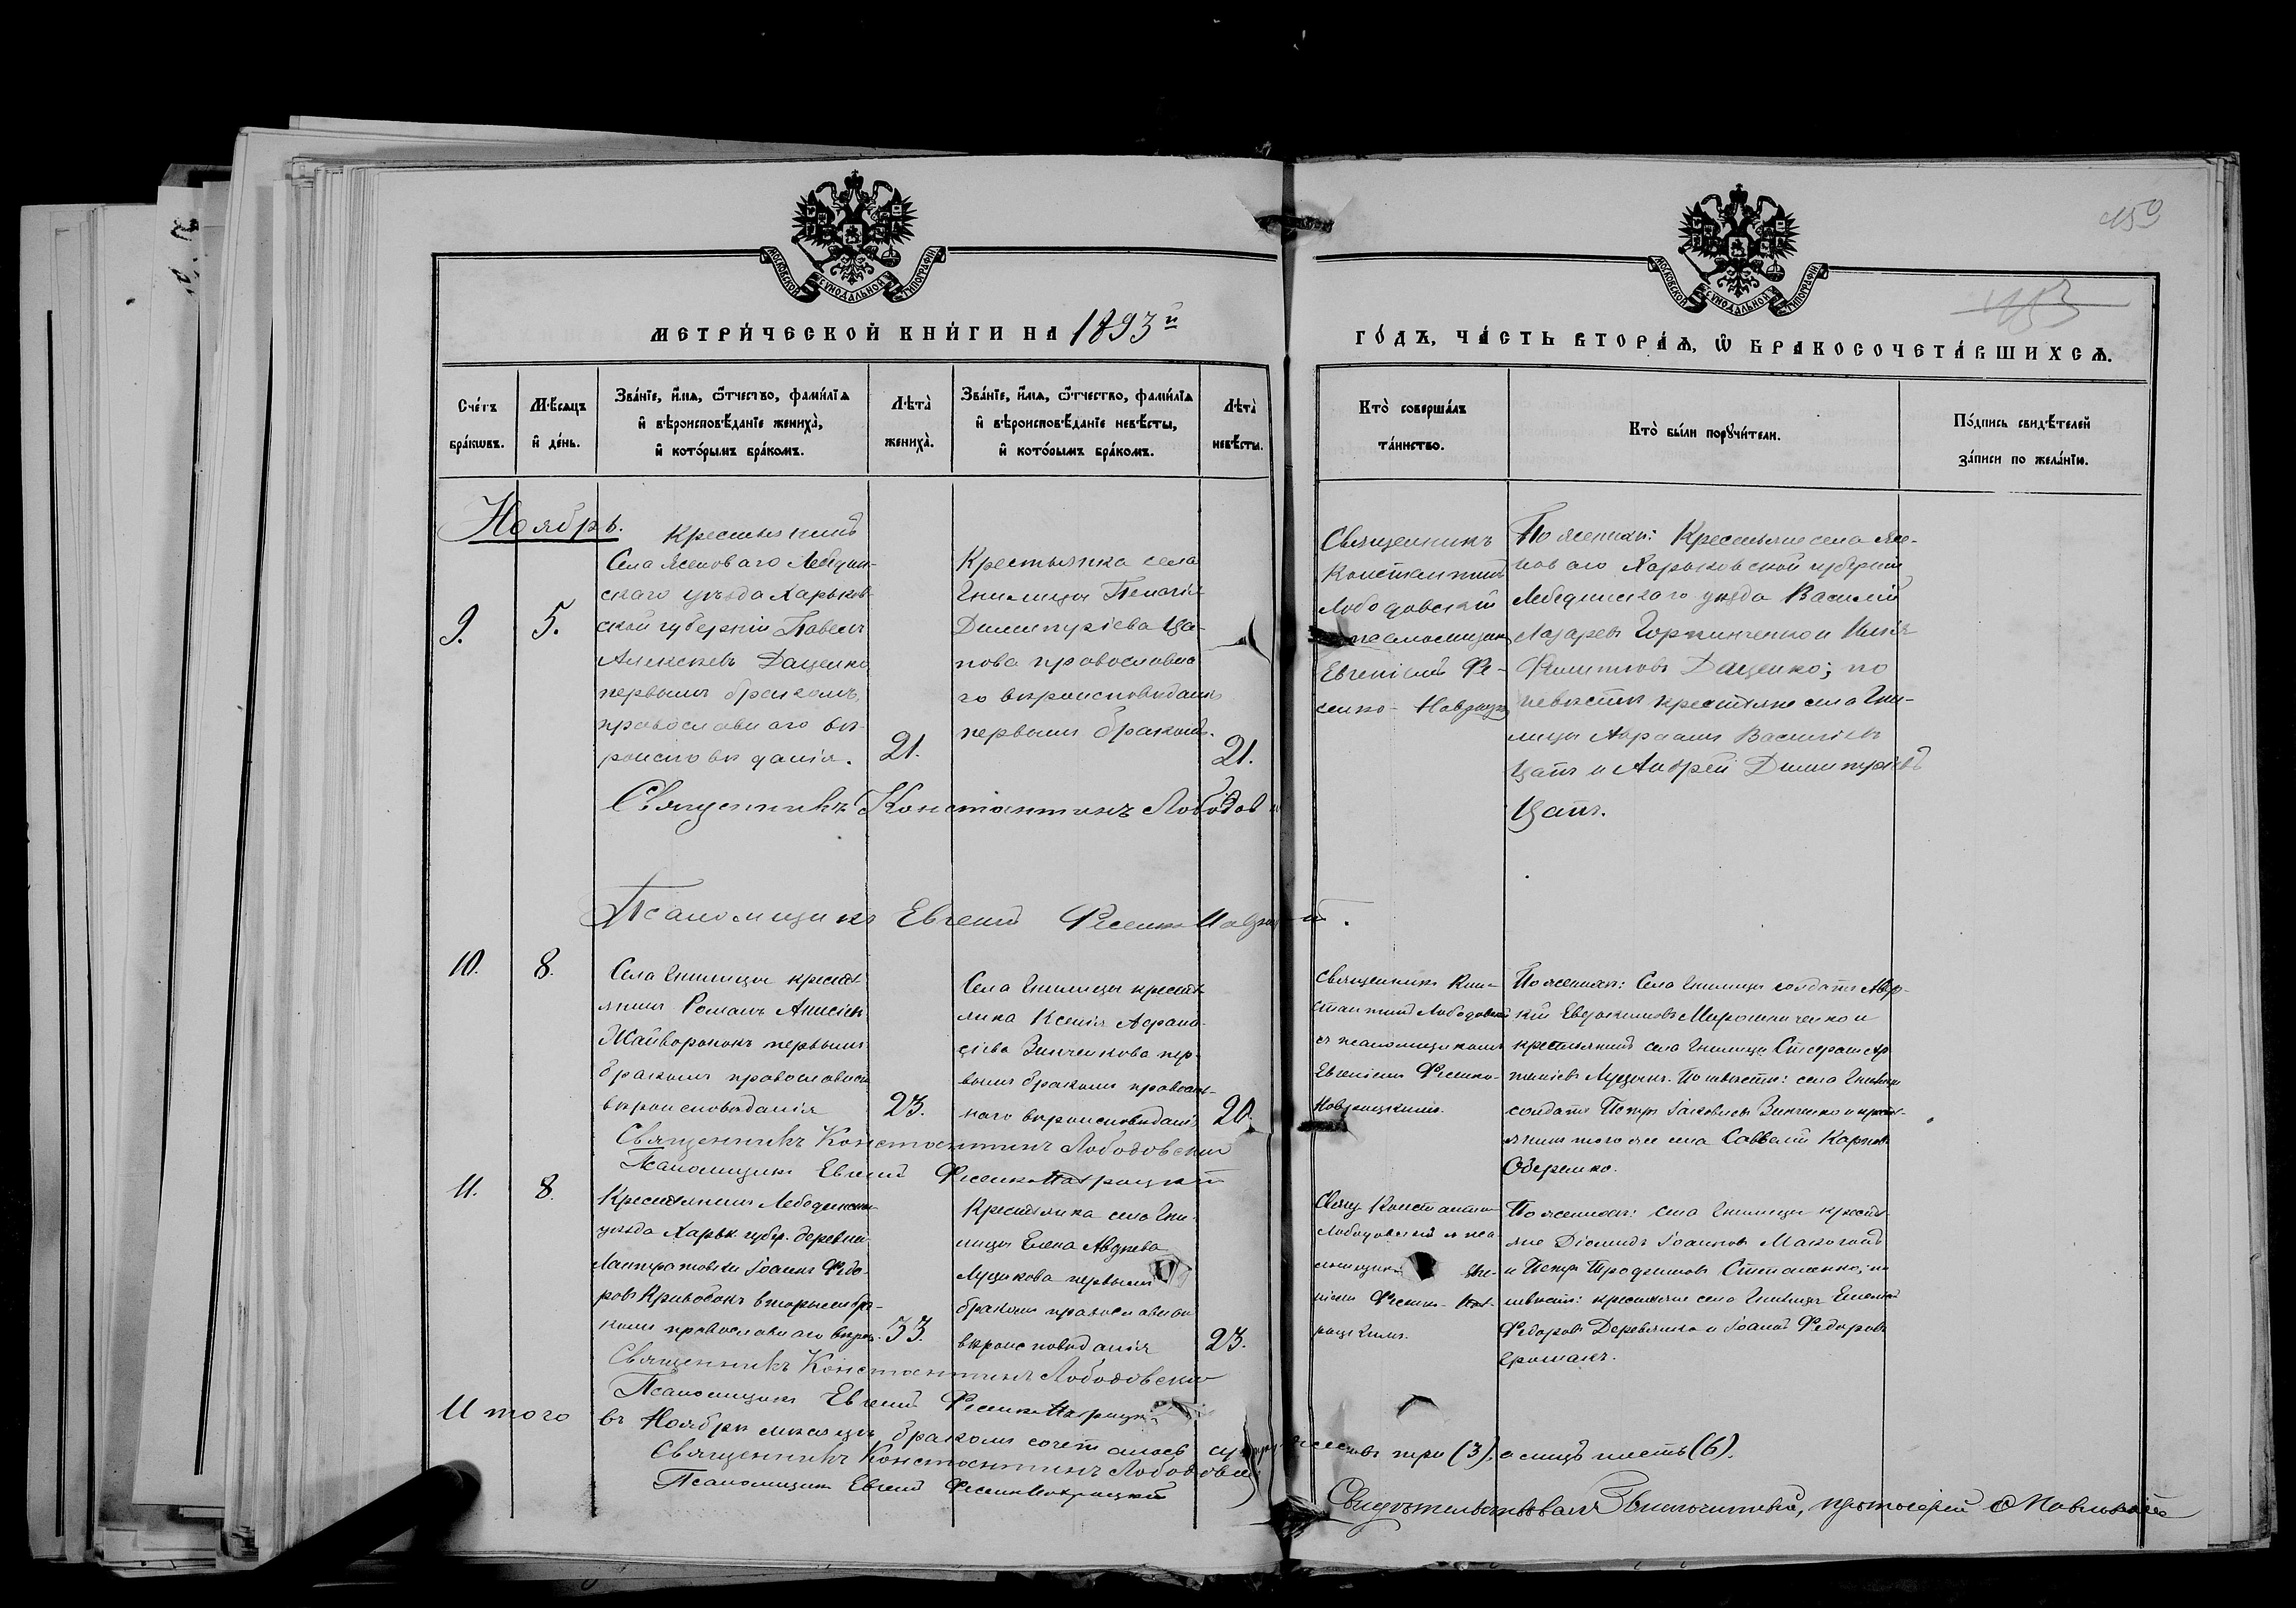 159
153
МОСКОВСКОЙ СѴНОДАЛЬНОЙ ТИПОГРАФІИ
МОСКОВСКОЙ СѴНОДАЛЬНОЙ ТИПОГРАФІИ
МЕТРИ́ЧЕСКОЙ КНИ́ГИ НА 1893й
ГО́ДЪ, ЧА́СТЬ ВТОРА́Ѧ, Ѽ БРАКОСОЧЕТА́ВШИХСѦ.
Сче́тъ бра́кѡвъ.
Мѣ́сѧцъ и҆ де́нь.
Зва́нїе, и҆́мѧ, ѻ҆́тчество, фами́лїѧ и҆ вѣроисповѣ́данїе жениха̀, и҆ кото́рымъ бра́комъ.
Лѣ́та̀ жениха̀.
Зва́нїе, и҆́мѧ, ѻ҆́тчество, фами́лїѧ и҆ вѣроисповѣ́данїе невѣ́сты, и҆ кото́рымъ бра́комъ.
Лѣ́та̀ невѣ́сты.
Кто̀ соверша́лъ та́инство.
Кто̀ бы́ли порꙋчи́тели.
По́дпись свидѣ́телей за́писи по жела́нїю.
Ноябрь.
9.
5.
Крестьянинъ
Села Ясеноваго Лебедин-
скаго уѣзда Харьков-
ской губерніи Павелъ
Алексѣевъ Даценко
первымъ бракомъ,
православнаго вѣ-
роисповѣданія.
21.
Крестьянка села
Гнилицы Пелагія
Димитріева Ца-
пова православна-
го вѣроисповѣданія
первымъ бракомъ.
21.
Священникъ
Константинъ
Лободовскій
псаломщикъ
Евгеній Фе-
сенко-Навроцк
По женихѣ: Крестьяне села Ясе-
новаго Харьковской губерніи
Лебединскаго уѣзда Василій
Лазаревъ и
Даценко; по
невѣстѣ крестьяне села Гни-
лицы Авраамъ Василіевъ
Цапъ и Андрей Димитріевъ
Цапъ.
Священникъ Константинъ Лободов
Псаломщикъ Евгеній Фесенко-Навроцкій.
10.
8.
Села Гнилицы кресть-
янинъ Романъ Анисіевъ
Жайворонокъ первымъ
бракомъ православнаго
вѣроисповѣданія
23.
Села Гнилицы кресть-
янка Ксенія Афана-
сіева Зинченкова пер-
вымъ бракомъ православ-
наго вѣроисповѣданія
20.
Священникъ Кон-
стантинъ Лободовскій
съ псаломщикомъ
Евгеніемъ Фесенко-
Навроцкимъ.
По женихѣ: Села Гнилицы солдатъ
Евдокимовъ Мирошниченко и
крестьянинъ села Гнилицы Стефанъ
Луцыкъ. По невѣстѣ: села Гнилицы
солдатъ Петръ Іаковлевъ Зинченко и кресть-
янинъ того же села Савватій Карповъ
Оберемко.
Священникъ Константинъ Лободовскій
Псаломщикъ Евгеній Фесенко-Навроцкій
11.
8.
Крестьянинъ Лебединскаго
уѣзда Харьк. губер. деревни
Іоаннъ Федо-
ровъ Кривобокъ вторымъ бра-
комъ православнаго вѣроис.
33.
Крестьянка села Гни-
лицы Елена Авдѣева
Луцикова первымъ
бракомъ православнаго
вѣроисповѣданія
23.
Свящ Константинъ
Лободовскій и пса
ломщикъ Евге-
ніемъ Фесенко-Нав-
роцкимъ.
По женихѣ: села Гнилицы кресть-
яне Діомидъ Іоанновъ Макогонъ
и Петръ Трофимовъ Степаненко; по
невѣстѣ: крестьяне села Гнилицы
Федоровъ Деревянко и Іоаннъ Федоровъ
Ермакъ.
Священникъ Константинъ Лободовскій
Псаломщикъ Евгеній Фесенко-Навроцкій
Итого въ Ноябрѣ мѣсяцѣ бракомъ сочеталось супружествъ три (3), а лицъ шесть (6).
Священникъ Константинъ Лободовск
Псаломщикъ Евгеній Фесенко-Навроцкій
Свидѣтельствовалъ Благочинный, протоіерей Павловскій